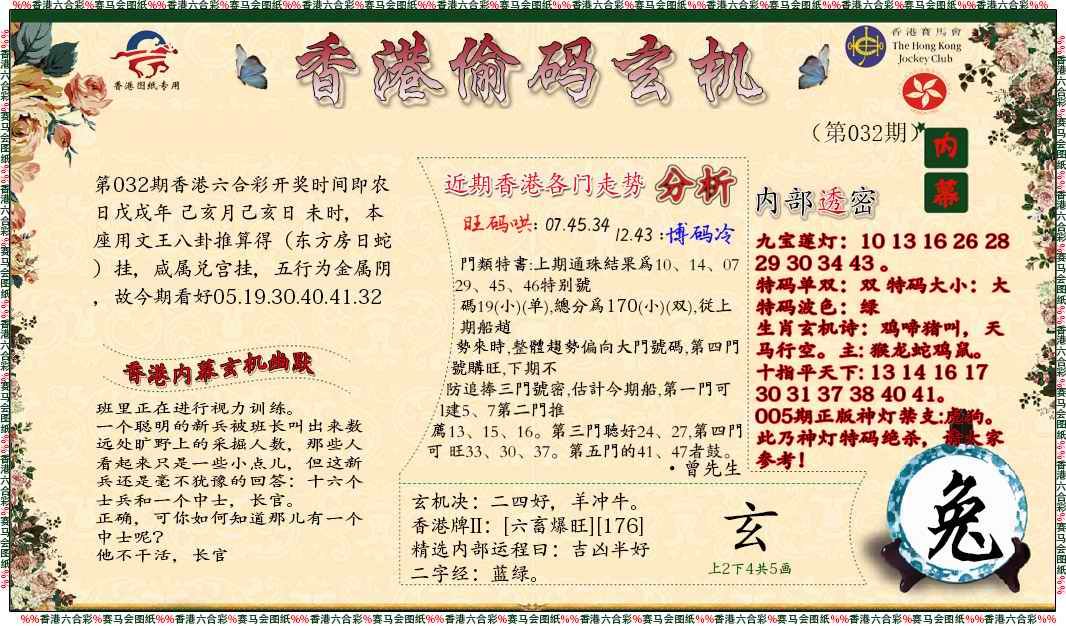 %%香港六合彩%赛马会图纸%%香港六合彩%赛马会图纸%%香港六合彩%赛马会图纸%%香港六合彩%赛马会图纸%%香港六合彩%赛马会图纸%%香港六合彩%赛马会图纸%%香港六合彩%%
香港图纸专用
香港偷码玄机
香港賽馬會
The Hong Kong
Jockey Club
（第032期）
内
幕
第032期香港六合彩开奖时间即农
日戊戌年 己亥月己亥日 未时，本
座用文王八卦推算得（东方房日蛇
）挂，咸属兑宫挂，五行为金属阴
，故今期看好05.19.30.40.41.32
香港内幕玄机幽默
班里正在进行视力训练。
一个聪明的新兵被班长叫出来数
远处旷野上的采掘人数，那些人
看起来只是一些小点儿，但这新
兵还是毫不犹豫的回答：十六个
士兵和一个中士，长官。
正确，可你如何知道那儿有一个
中士呢？
他不干活，长官
近期香港各门走势 分析
旺码哄：07.45.34
12.43：博码冷
門類特書:上期通珠結果爲10、14、07
29、45、46特别號
碼19(小)(单),總分爲170(小)(双),従上
期船趙
勢來時,整體趨勢偏向大門號碼,第四門
號購旺,下期不
防追捧三門號密,估計今期船,第一門可
1建5、7第二門推
薦13、15、16。第三門聴好24、27,第四門
可 旺33、30、37。第五門的41、47者鼓。
·曾先生
玄机决：二四好，羊冲牛。
香港牌II：[六畜爆旺][176]
精选内部运程日：吉凶半好
二字经：蓝绿。
玄
上2下4共5画
内部透密
九宝莲灯：10 13 16 26 28
29 30 34 43 。
特码单双：双 特码大小：大
特码波色：绿
生肖玄机诗：鸡啼猪叫，天
马行空。主: 猴龙蛇鸡鼠。
十指平天下: 13 14 16 17
30 31 37 38 40 41。
005期正版神灯禁支:虎狗。
此乃神灯特码绝杀，请大家
参考！
兔
%%香港六合彩%赛马会图纸%%香港六合彩%赛马会图纸%%香港六合彩%赛马会图纸%%香港六合彩%赛马会图纸%%香港六合彩%赛马会图纸%%香港六合彩%赛马会图纸%%香港六合彩%%